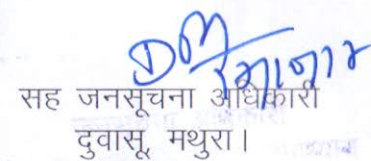 सह जनसूचना अधिकारी
दुवासू, मथुरा।